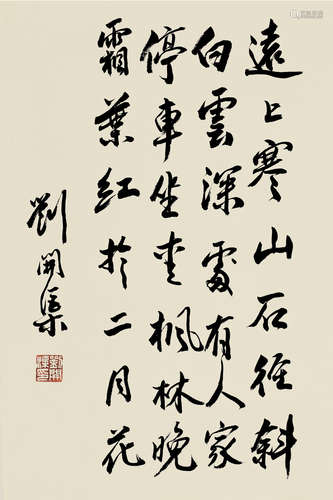 遠上寒山石徑斜
白雲深處有人家
停車坐愛楓林晚
霜葉紅於二月花
劉開渠